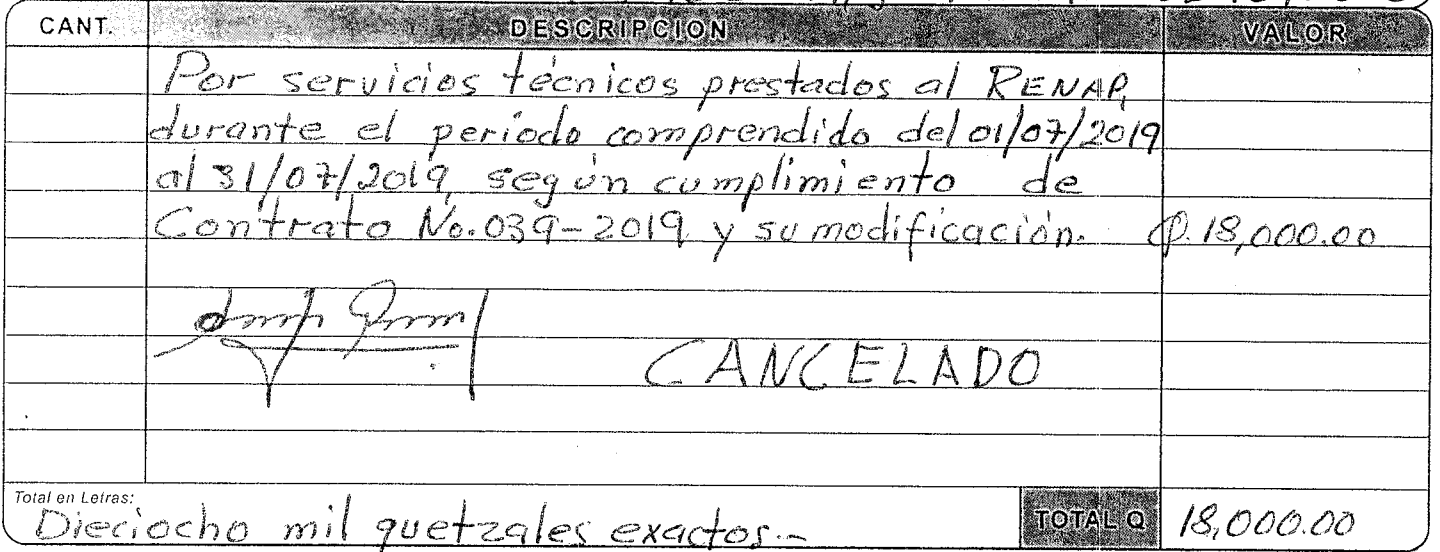 CANT. DESCRIPCION VALOR
Por servicios técnicos prestados al RENAP,
durante el período comprendido del 01/07/2019
al 31/07/2019, según cumplimiento de
Contrato No. 039-2019 y su modificación. Q. 18,000.00
CANCELADO
Total en Letras:
Dieciocho mil quetzales exactos.- TOTAL Q 18,000.00